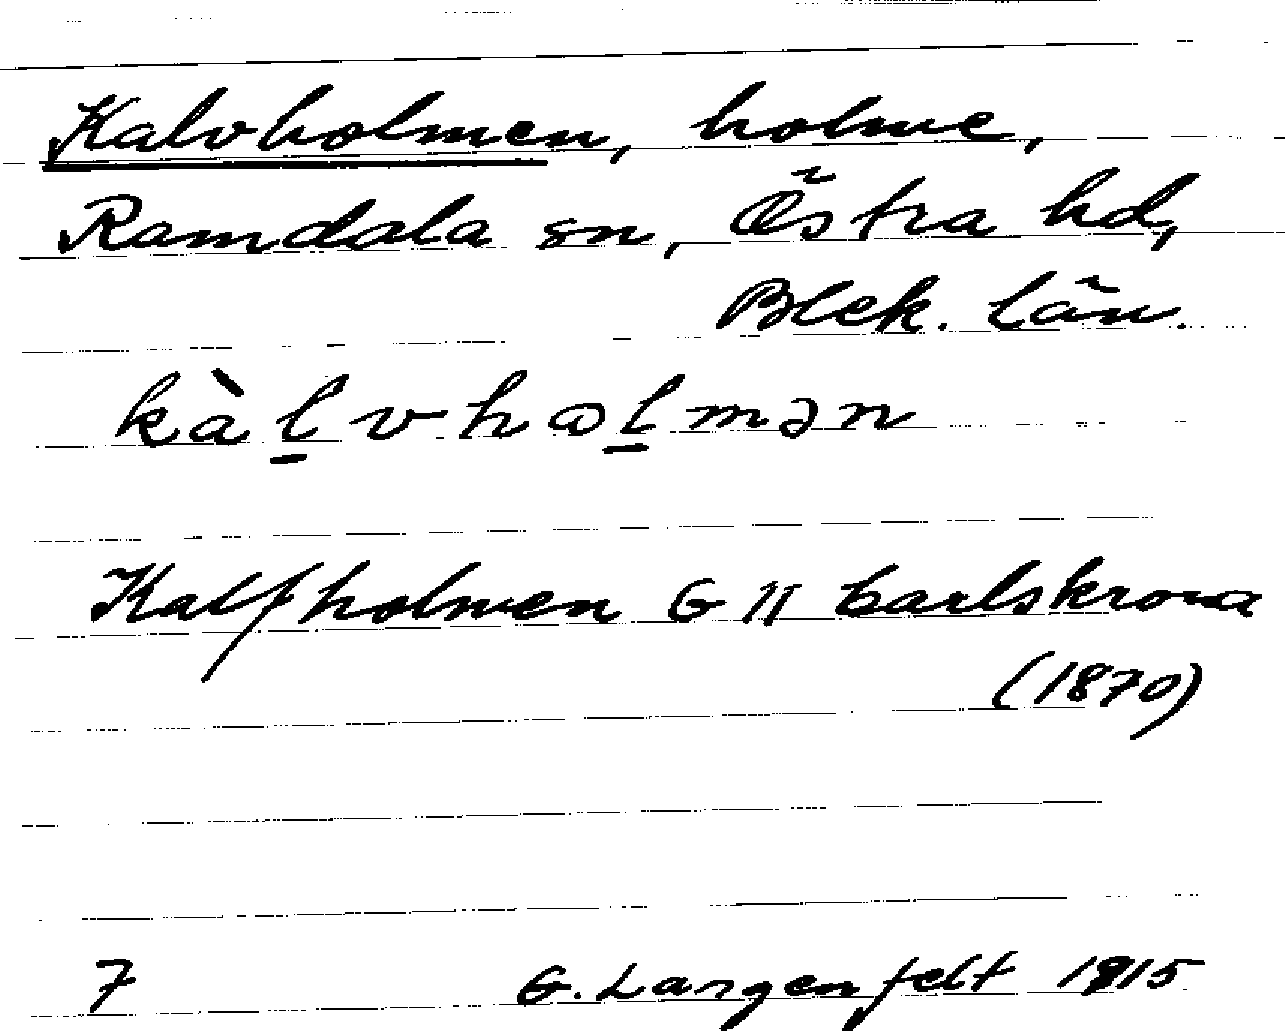 Kalvholmen, holme,
Ramdala sn, Östra hd,
Blek. län.
kàl̠vhɷl̠mən
Kalfholmen G II Carlskrona
(1870)
7 G. Langenfelt 1915